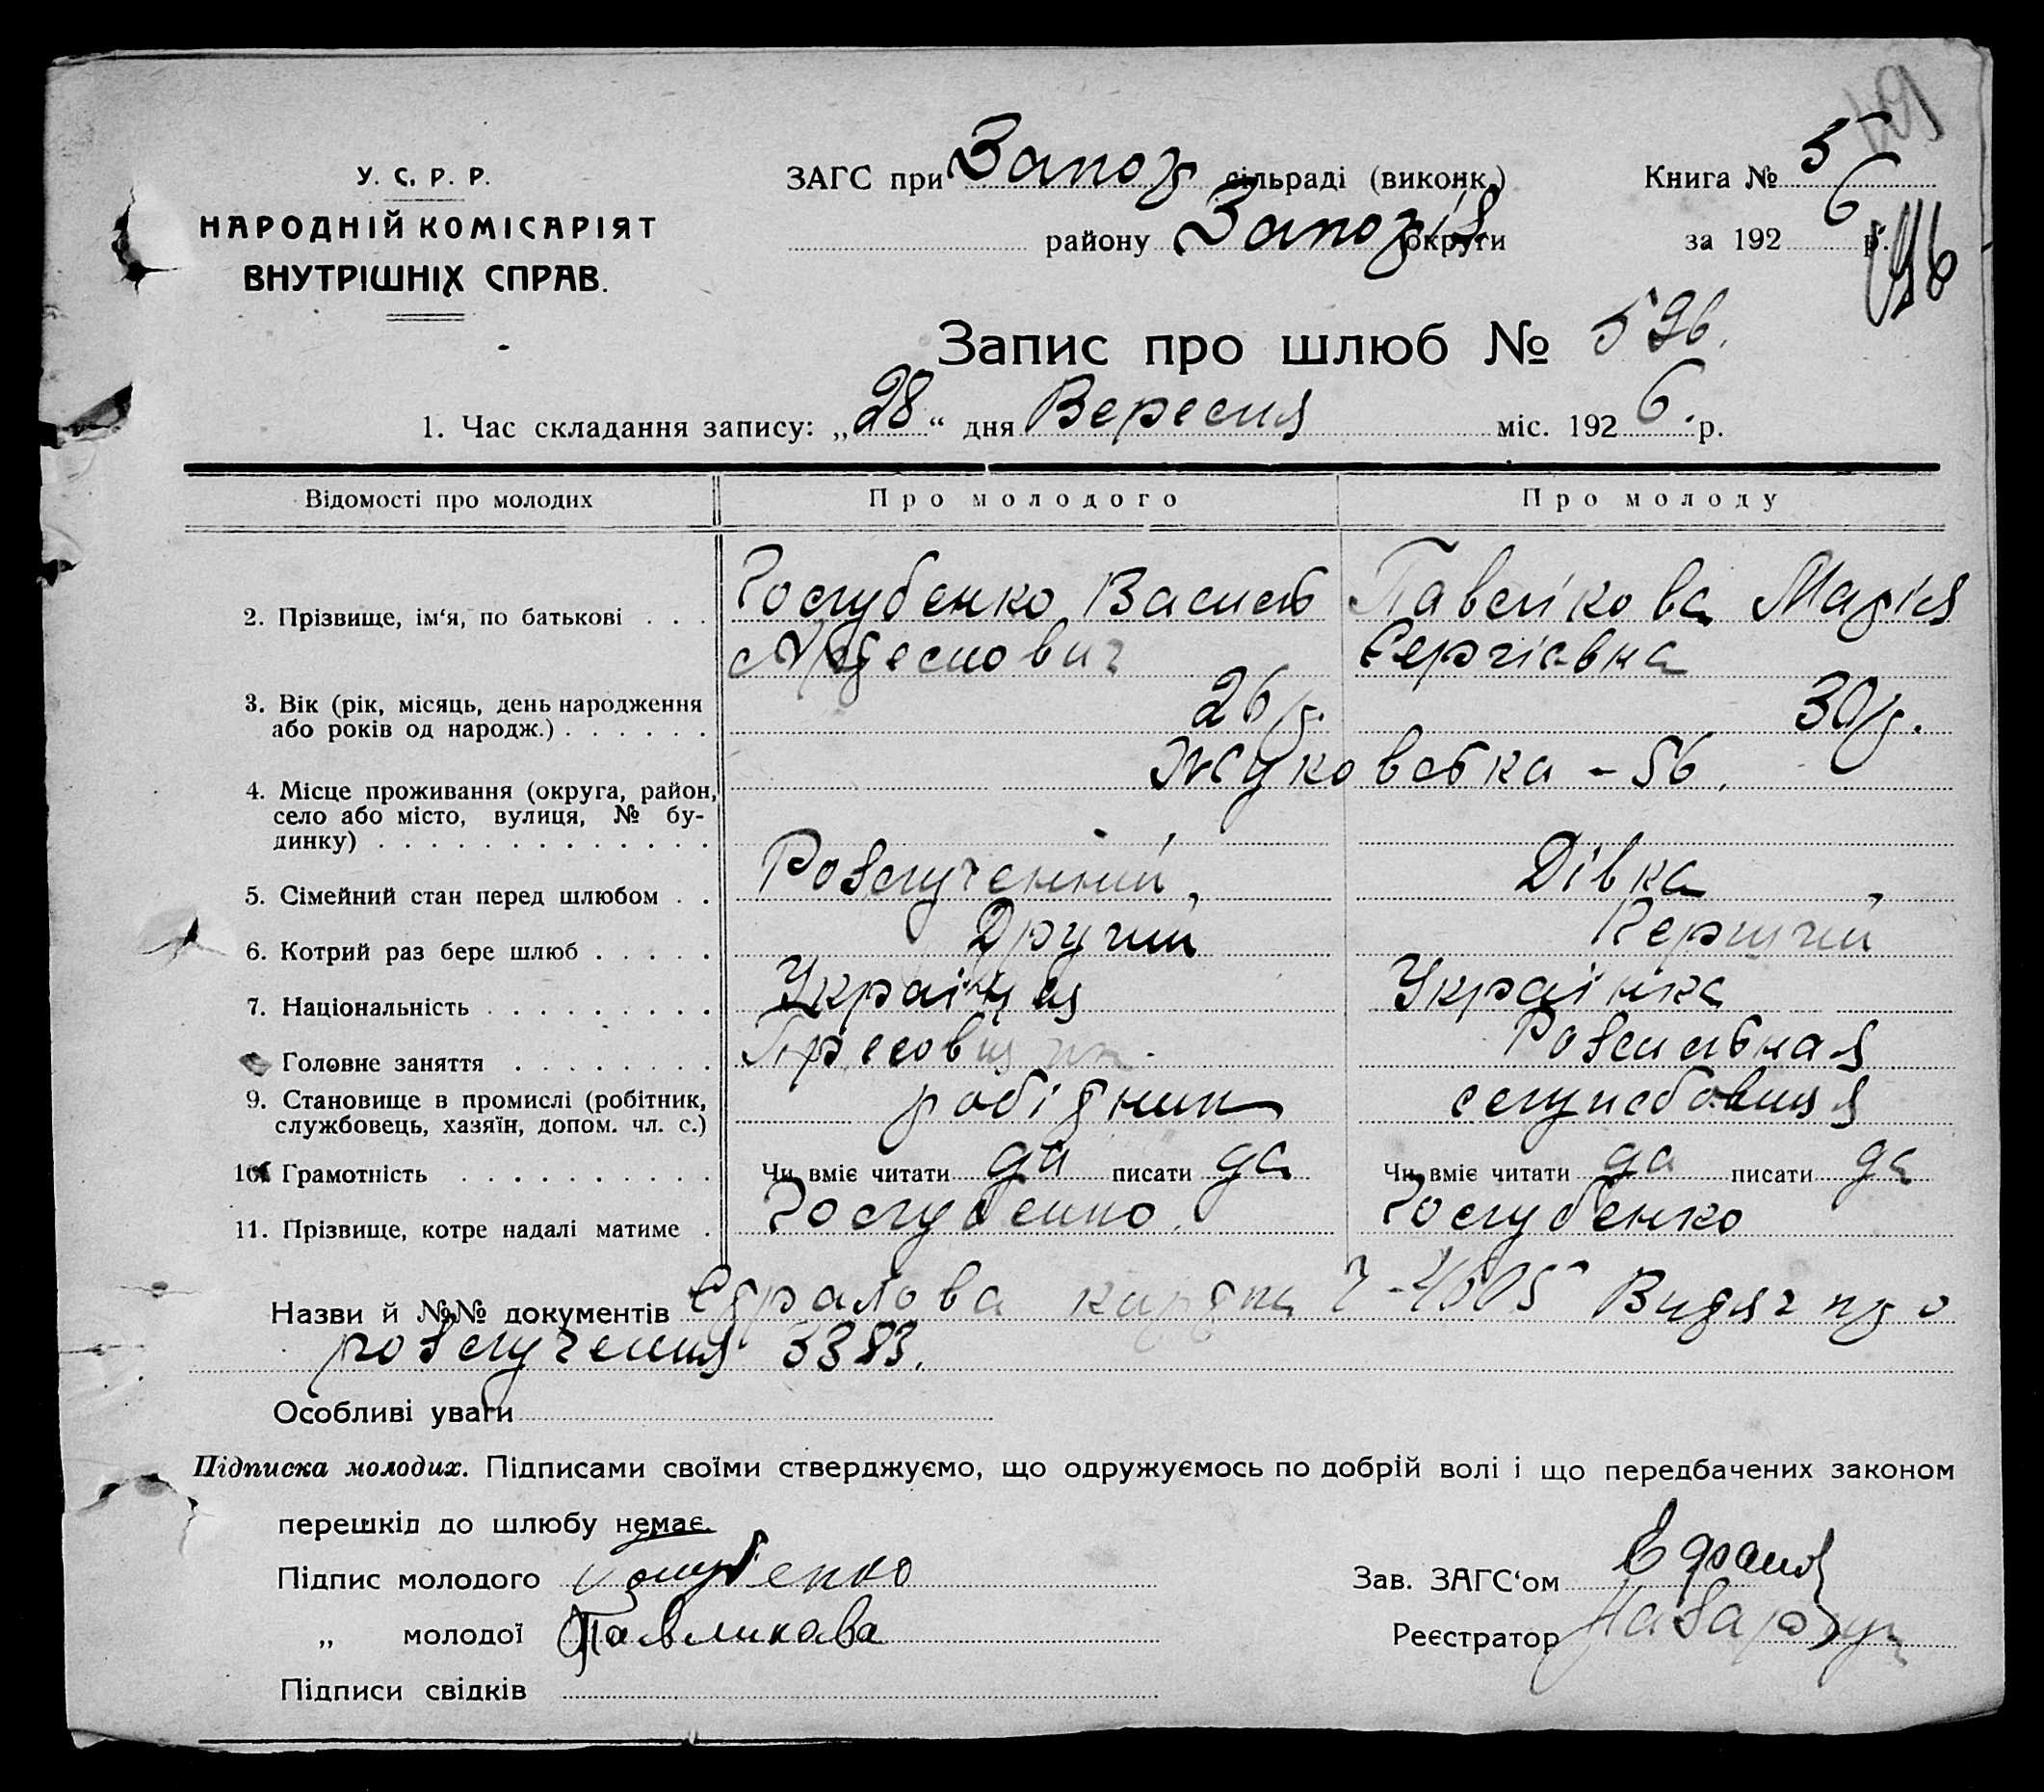 У. С. Р. Р.
НАРОДНІЙ КОМІСАРІЯТ
ВНУТРІШНІХ СПРАВ.
ЗАГС при Запоз сільраді (виконк.)
району Запозія округи
Книга № 5
за 192 6 р.
Запис про шлюб № 596.
1. Час складання запису: „28“ дня Вересня міс. 192 6. р.
Відомості про молодих Про молодого Про молоду
2. Прізвище, ім‘я, по батькові . . . Голубенко Василь Павлікова Марія
Сергіевна
3. Вік (рік, місяць, день народження
або років од народж.) . . . . . . 26 р. 30 р.
4. Місце проживання (округа, район,
село або місто, вулиця, № бу-
динку) . . . . . . . . . . . . . Жуковська - 56.
5. Сімейний стан перед шлюбом . . Розлучений, Дівка
6. Котрий раз бере шлюб . . . . . Другий Першчий
7. Національність . . . . . . . . . Українця Українка
Головне заняття . . . . . . . . Пресовщик. Розсильная
9. Становище в промислі (робітник,
службовець, хазяїн, допом. чл. с.) робітник службовиця
10. Грамотність . . . . . . . . . . Чи вміє читати да писати да Чи вміє читати да писати да
11. Прізвище, котре надалі матиме . Голубенко. Голубенко
Назви й №№ документів карта Витяг про
розлучення 3383.
Особливі уваги
Підписка молодих. Підписами своїми стверджуємо, що одружуємось по добрій волі і що передбачених законом
перешкід до шлюбу немає.
Підпис молодого Голубенко Зав. ЗАГС‘ом
„ молодої Павликова Реєстратор
Підписи свідків